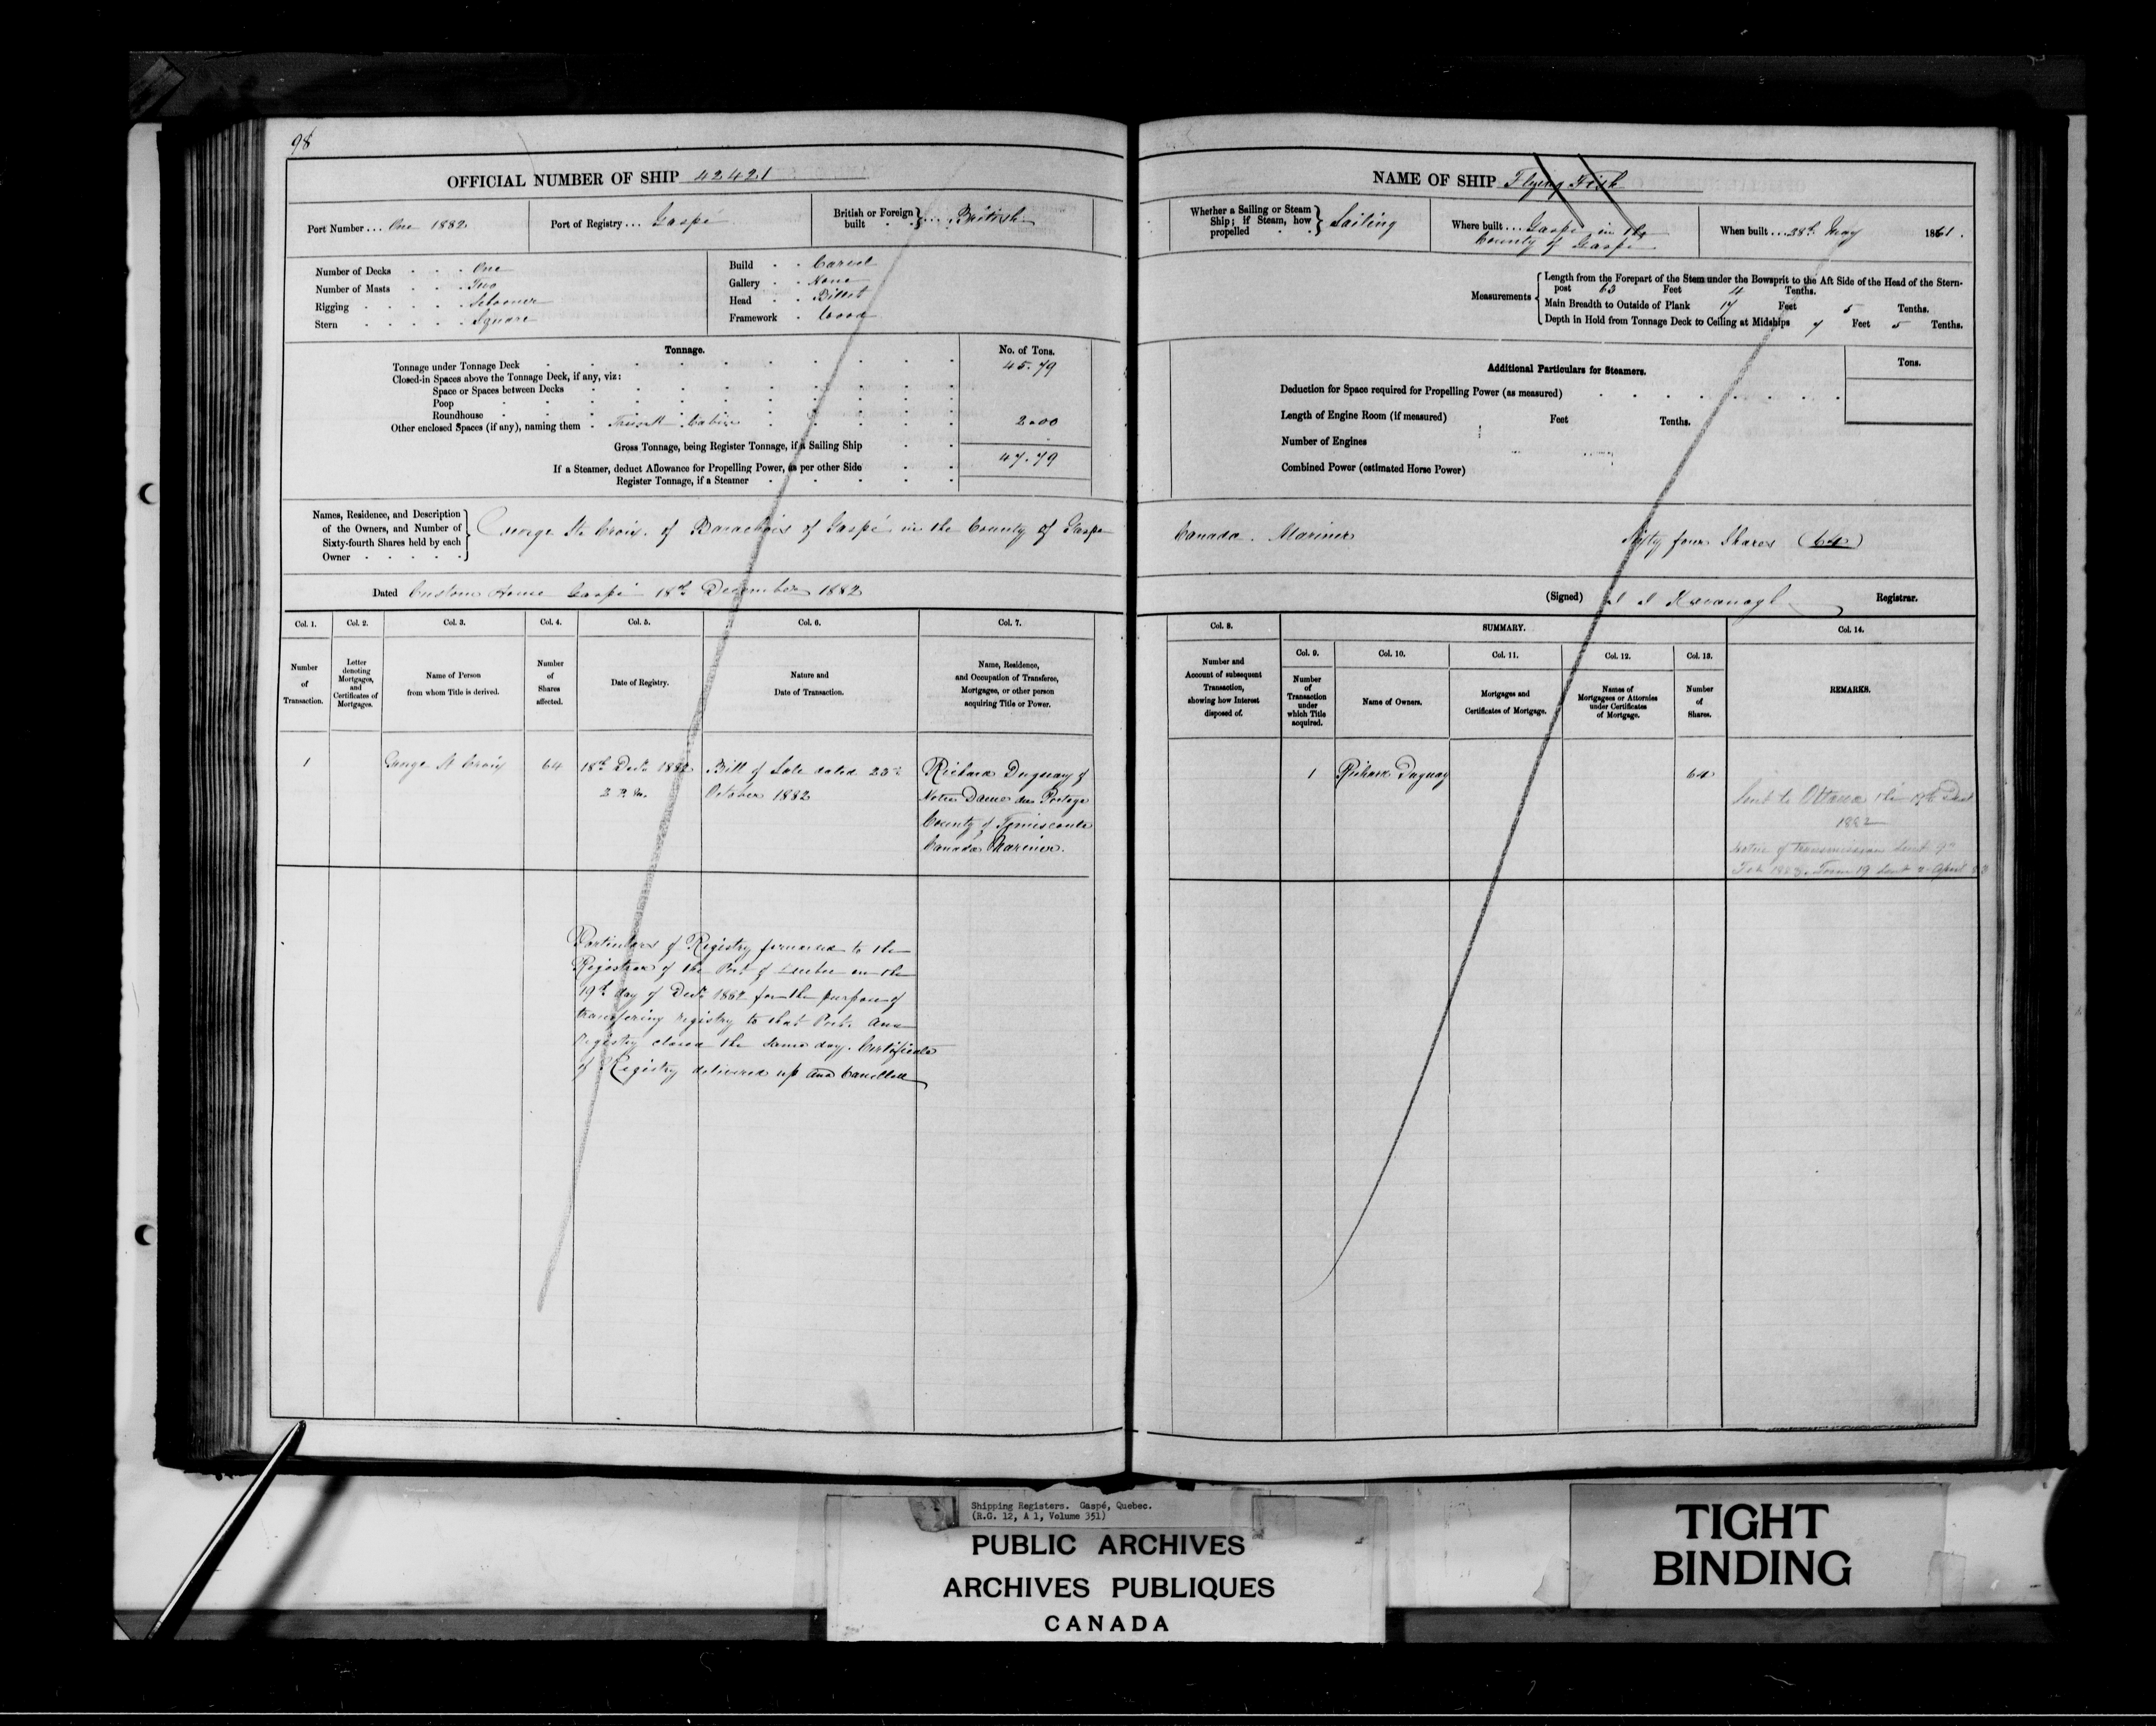 98
OFFICIAL NUMBER OF SHIP 42421
Port Number ... One 1882
Port of Registry ... Gaspé
British or Foreign built ... British
Number of Decks One
Number of Masts Two
Rigging Schooner
Stern Square
Build Carvel
Gallery None
Head Billet
Framework Wood
Tonnage.
No. of Tons.
Tonnage under Tonnage Deck 45.79
Closed-in Spaces above the Tonnage Deck, if any, viz:
Space or Spaces between Decks
Poop
Roundhouse
Other enclosed Spaces (if any), naming them Trunk Cabin 2.00
Gross Tonnage, being Register Tonnage, if a Sailing Ship 47.79
If a Steamer, deduct Allowance for Propelling Power, as per other Side
Register Tonnage, if a Steamer
Names, Residence, and Description
of the Owners, and Number of
Sixty-fourth Shares held by each
Owner
George St. Croix. of Barachois of Gaspé in the County of Gaspe
Dated Custom House Gaspé 18th December 1882
Col. 1.
Number
of
Transaction.
Col. 2.
Letter
denoting
Mortgages,
and
Certificates of
Mortgages.
Col. 3.
Name of Person
from whom Title is derived.
Col. 4.
Number
of
Shares
affected.
Col. 5.
Date of Registry.
Col. 6.
Nature and
Date of Transaction.
Col. 7.
Name, Residence,
and Occupation of Transferee,
Mortgagee, or other person
acquiring Title or Power.
1
George St Croix
64
18th Decr 1882
2 P.M.
Bill of Sale dated 23rd
October 1882
Richard Duguay of
Notre Dame du Portage
County of Temiscouta
Canada Mariner.
Particulars of Registry forwarded to the
Registrar of the Port of Quebec on the
19th day of Decr 1882 for the purpose of
transfering registry to that Port. And
Registry closed the same day. Certificate
of Registry delivered up and Cancelled
NAME OF SHIP Flying Fish
Whether a Sailing or Steam
Ship; if Steam, how
propelled
Sailing
Where built ... Gaspé in the
County of Gaspé
When built ... 28th May 1861.
Measurements
Length from the Forepart of the Stem under the Bowsprit to the Aft Side of the Head of the Stern-
post 63 Feet 4 Tenths.
Main Breadth to Outside of Plank 17 Feet 5 Tenths.
Depth in Hold from Tonnage Deck to Ceiling at Midships 7 Feet 5 Tenths.
Additional Particulars for Steamers.
Tons.
Deduction for Space required for Propelling Power (as measured)
Length of Engine Room (if measured) Feet Tenths.
Number of Engines
Combined Power (estimated Horse Power)
Canada. Mariner Sixty four Shares (64)
(Signed) Kavanagh Registrar.
Col. 8.
Number and
Account of subsequent
Transaction,
showing how Interest
disposed of.
SUMMARY.
Col. 9.
Number
of
Transaction
under
which Title
acquired.
Col. 10.
Name of Owners.
Col. 11.
Mortgages and
Certificates of Mortgage.
Col. 12.
Names of
Mortgagees or Attornies
under Certificates
of Mortgage.
Col. 13.
Number
of
Shares.
Col. 14.
REMARKS.
1
Richard Duguay
64
Sent to Ottawa the 19th Dect
1882
Notice of transmission sent 9th
Feb 1883. Form 19 sent 2 April 83
Shipping Registers. Gaspé, Quebec.
(R.G. 12, A 1, Volume 351)
PUBLIC ARCHIVES
ARCHIVES PUBLIQUES
CANADA
TIGHT
BINDING